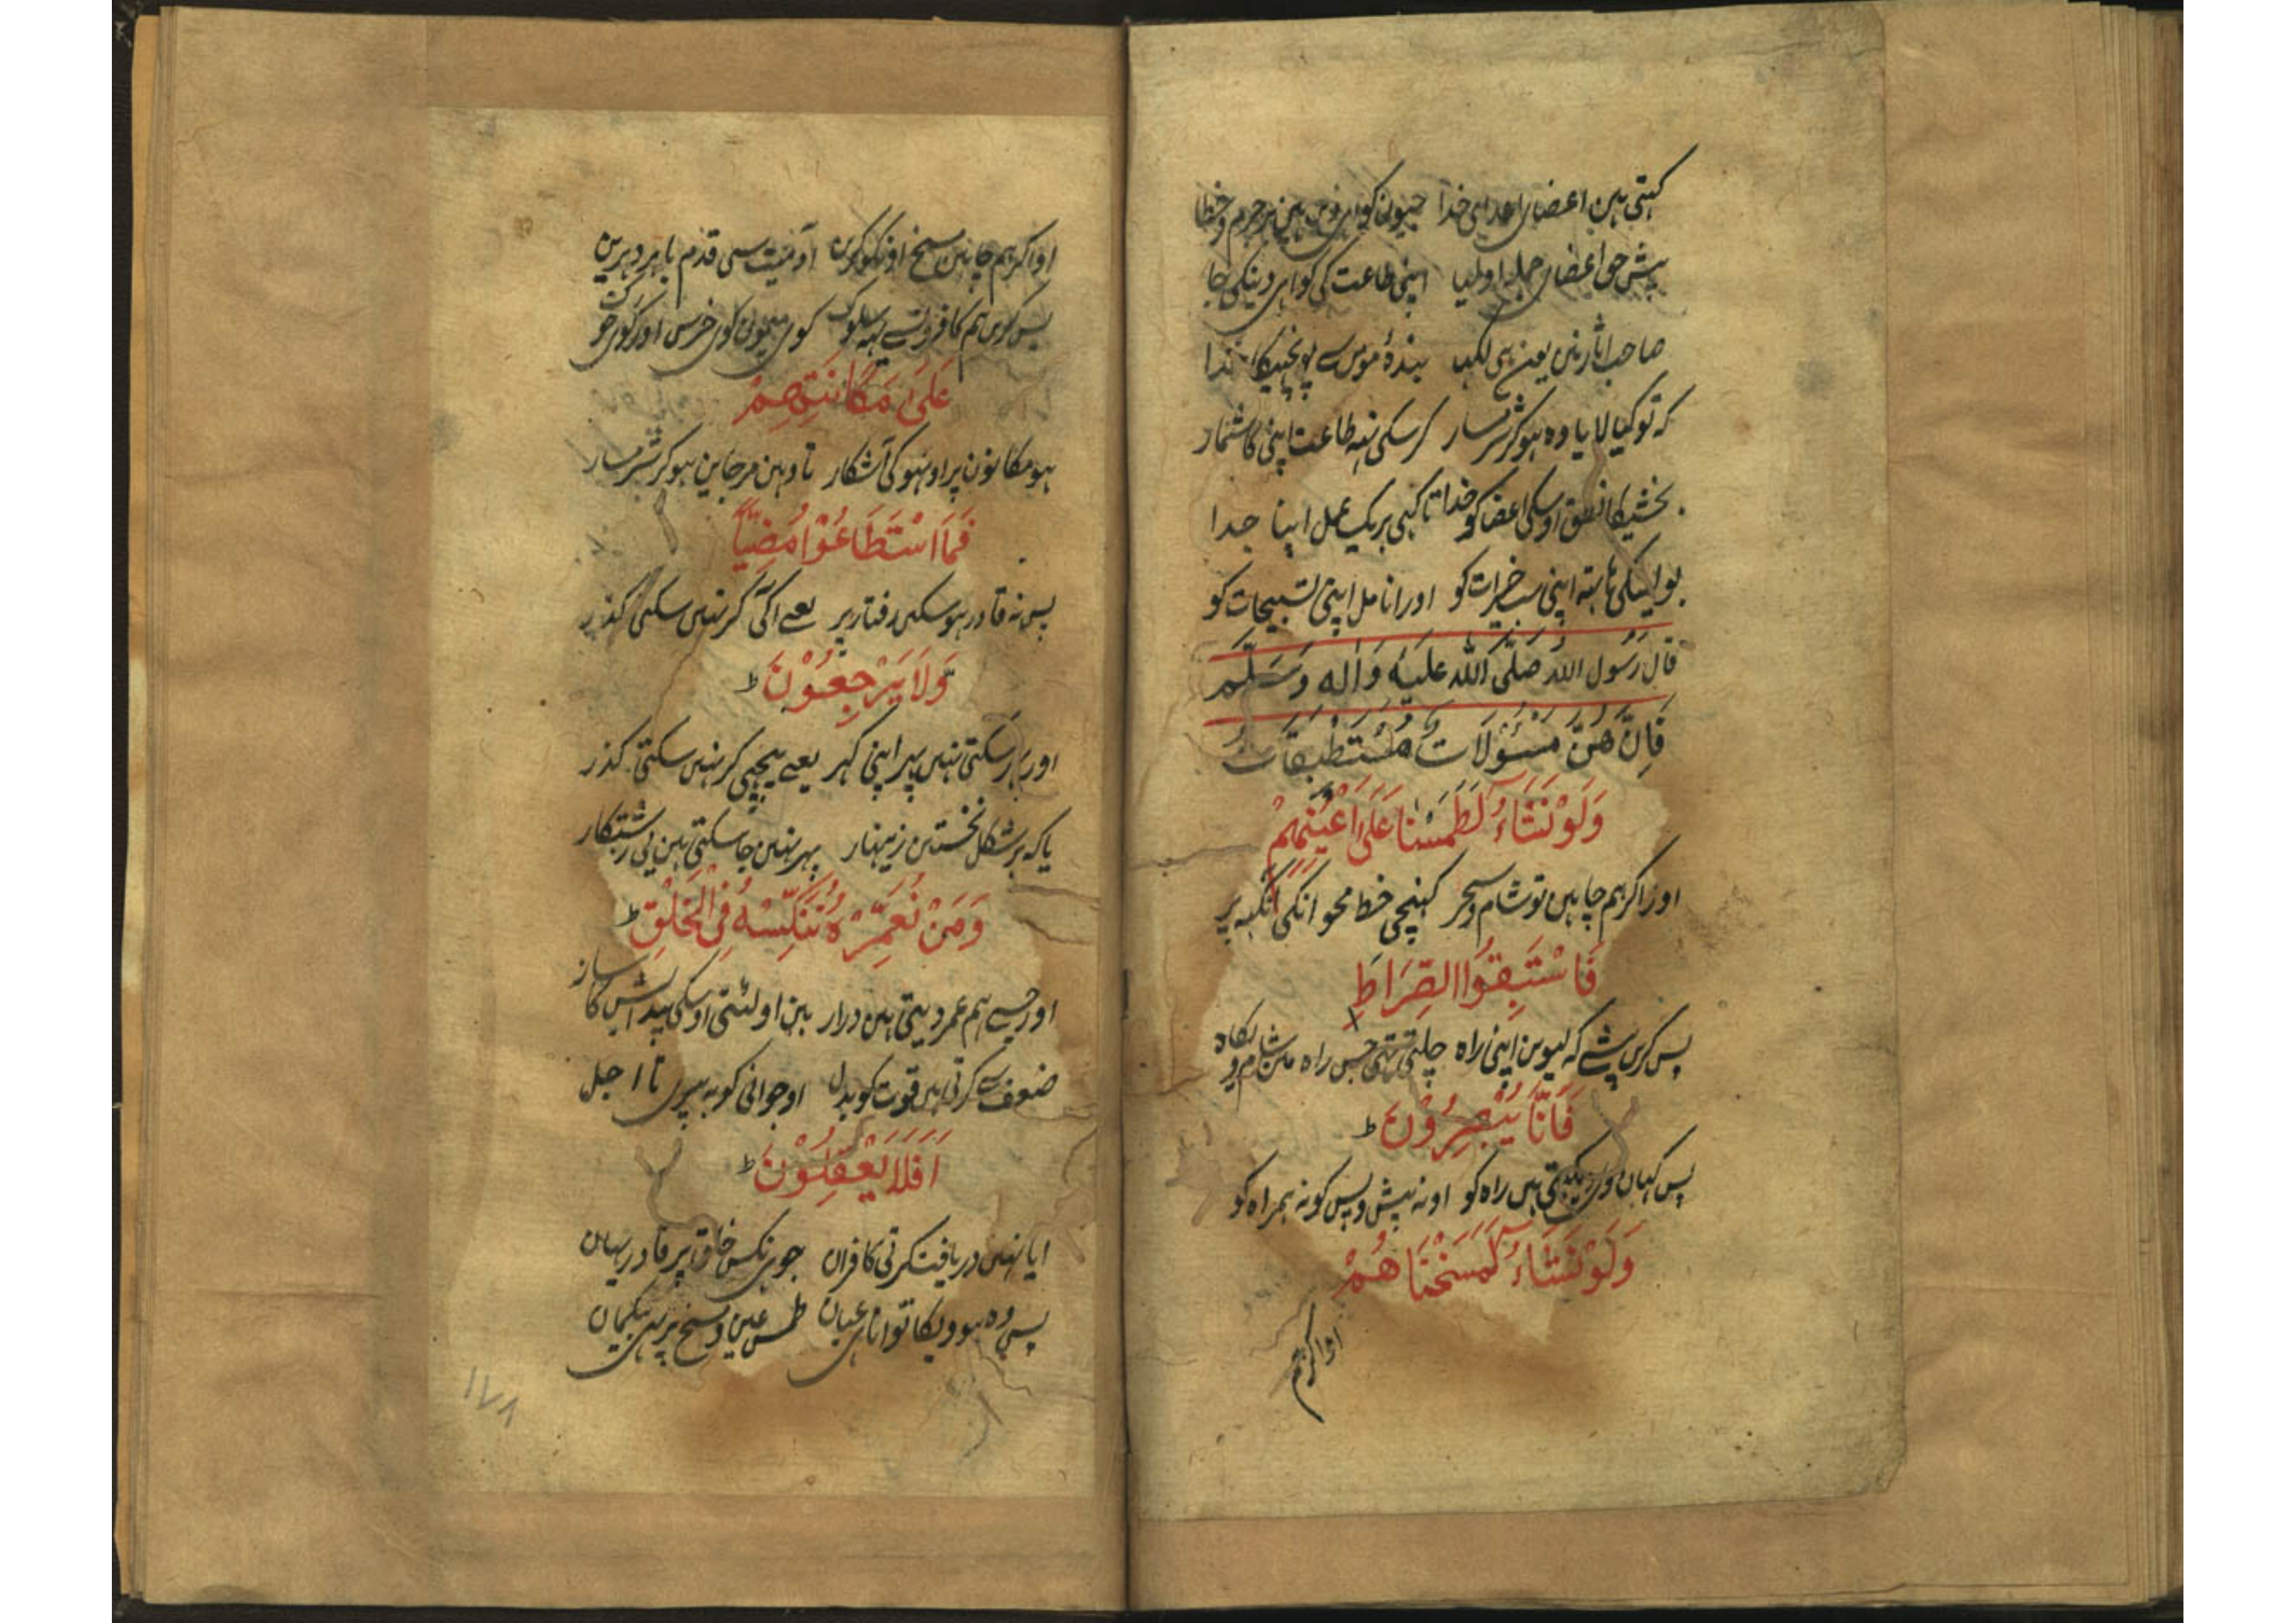 کہتی ہین اعضای اعدای خدا جیون کواہی دین ہین بر جرم و خطا
پیش حق اعضای جملہ اولیا اپنی طاعت کی کواہی دینکی جا
صاحب اثار نین یون ہی لکہا بندۂ مومن سے پوچہیکا ندا
کہ تو کیا لایا وہ ہوکر شرمسار کرسکی نہ طاعت اپنی کا شمار
بخشیکا نطق اوسکی اعضا کو خدا تا کہی ہریک عمل اپنا جدا
بولینکی ہاتہ اپنی سب خیرات کو اور انامل اپنی تسبیحات کو
قَالَ رَسُول اللہ صَلَّی اللہ عَلَیْہ وَاٰلہ وَسَلَّم
فَاِنَّ ھُنَّ مَسْئُوْلَاتٌ مُسْتَطْبِقَاتٌ
وَلَوْ نَشَاءُ لَطَمَسْنَا عَلٰی اَعْیُنِھِمْ
اور اکر ہم چاہین تو شام و سحر کہنچی خط محو انکی انکہہ پر
فَاسْتَبِقُوا الصِّرَاطَ
پس کرین پیشے کہ لیوین اپنی راہ چلتی تہی جس راہ مین شام و پکاہ
فَاَنّٰی یُبْصِرُوْنَ ط
پس کہان وی دیکہتی ہین راہ کو او نہ پیش و پس کو نہ ہمراہ کو
وَلَوْ نَشَاءُ لَمَسَخْنَاھُمْ
او اکر ہم
او اکر ہم چاہین مسخ اونکو کرین آدمیت سی قدم باہر دہرین
پس کرین ہم کافرون سے یہہ سلوک کوی میمون کوی خرس اور کوی خوک
عَلٰی مَکَانَتِھِمْ
ہو مکانون پر اونہو کی آشکار تا وہین مرجاین ہوکر شرمسار
فَمَا اسْتَطَاعُوْا مُضِیًّا
پس نہ قادر ہوسکین رفتار پر یعے آکی کر نہین سکتی کذر
وَلَا یَرْجِعُوْنَ ط
اور پہر سکتی نہین پہر اپنی کہر یعے پیچہی کر نہین سکتی کذر
یا کہ بر شکل نخستین زینہار پہر نہین جاسکتی ہین بی رشتکار
وَمَنْ نُعَمِّرْہُ نُنَکِّسْہُ فِی الْخَلْقِ ط
اور جسے ہم عمر دیتی ہین دراز ہین اولٹتی اوسکی پیدایش کا ساز
ضعف سے کرتی ہین قوت کو بدل او جوانی کو بہ پیری تا اجل
اَفَلَا یَعْقِلُوْنَ ط
ایا نہین دریافت کرتی کافران جو نکس خلق پر قادر یہان
پس وہ ہوویکا توانا ہی عیان طمس عین و مسخ پر بی بیکمان
۱۷۸